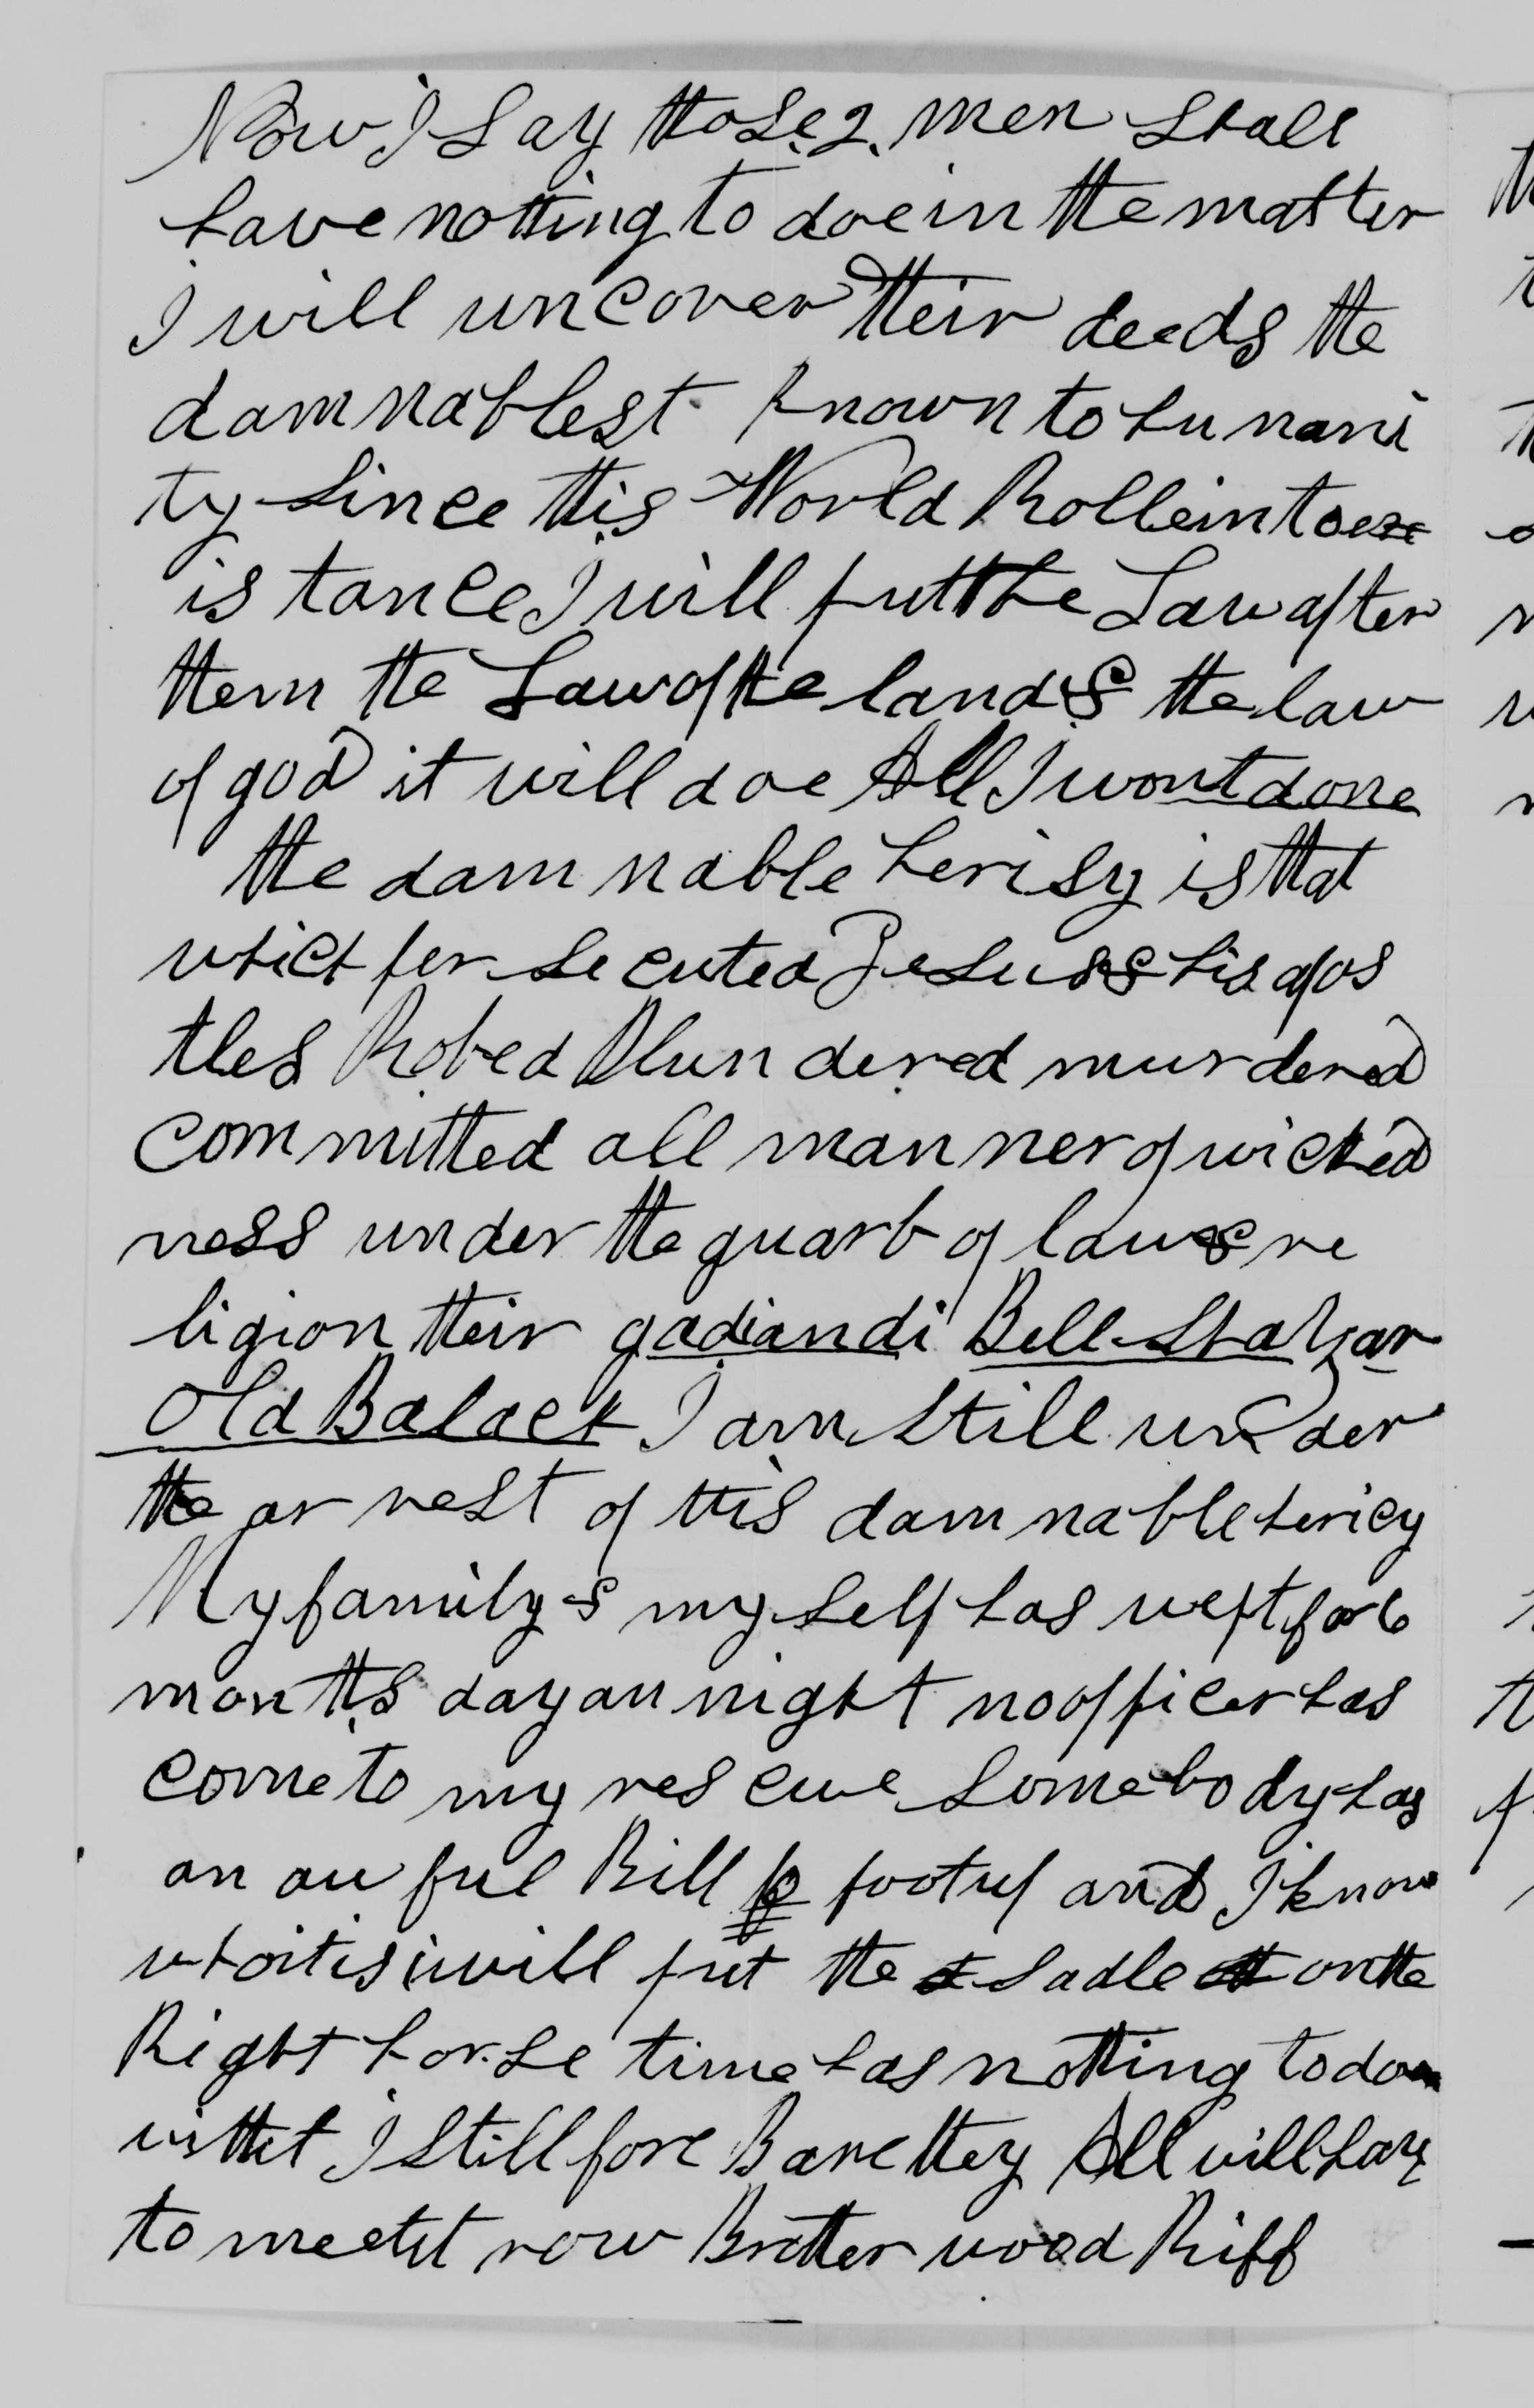 Now I Say those 2 men Shall
have nothing to doe in the matter
I will uncover their deeds the
damnablest known to hunani
ty Since this World Rolle into ex
istance I will put the Law after
them the Law of the land & the law
of god it will doe All I wont done
the damnable herisy is that
which persecuted Jesus & his apos
tles Robed Plundered murdered
committed all manner of wicked
ness under the guarb of law & re
ligion their gadiandi Bell Shatzar
Old Balack I am Still under
the arrest of this damnable hericy
My family & my Self has wept for 6
months day an night no officer has
come to my rescue Somebody has
an auful Bill to foot up and I know
who it is i will put the Sadle on the
Right horse time has nothing to doe
with it I Still fore Bare they All will have
to meet it now Brother wood Riff